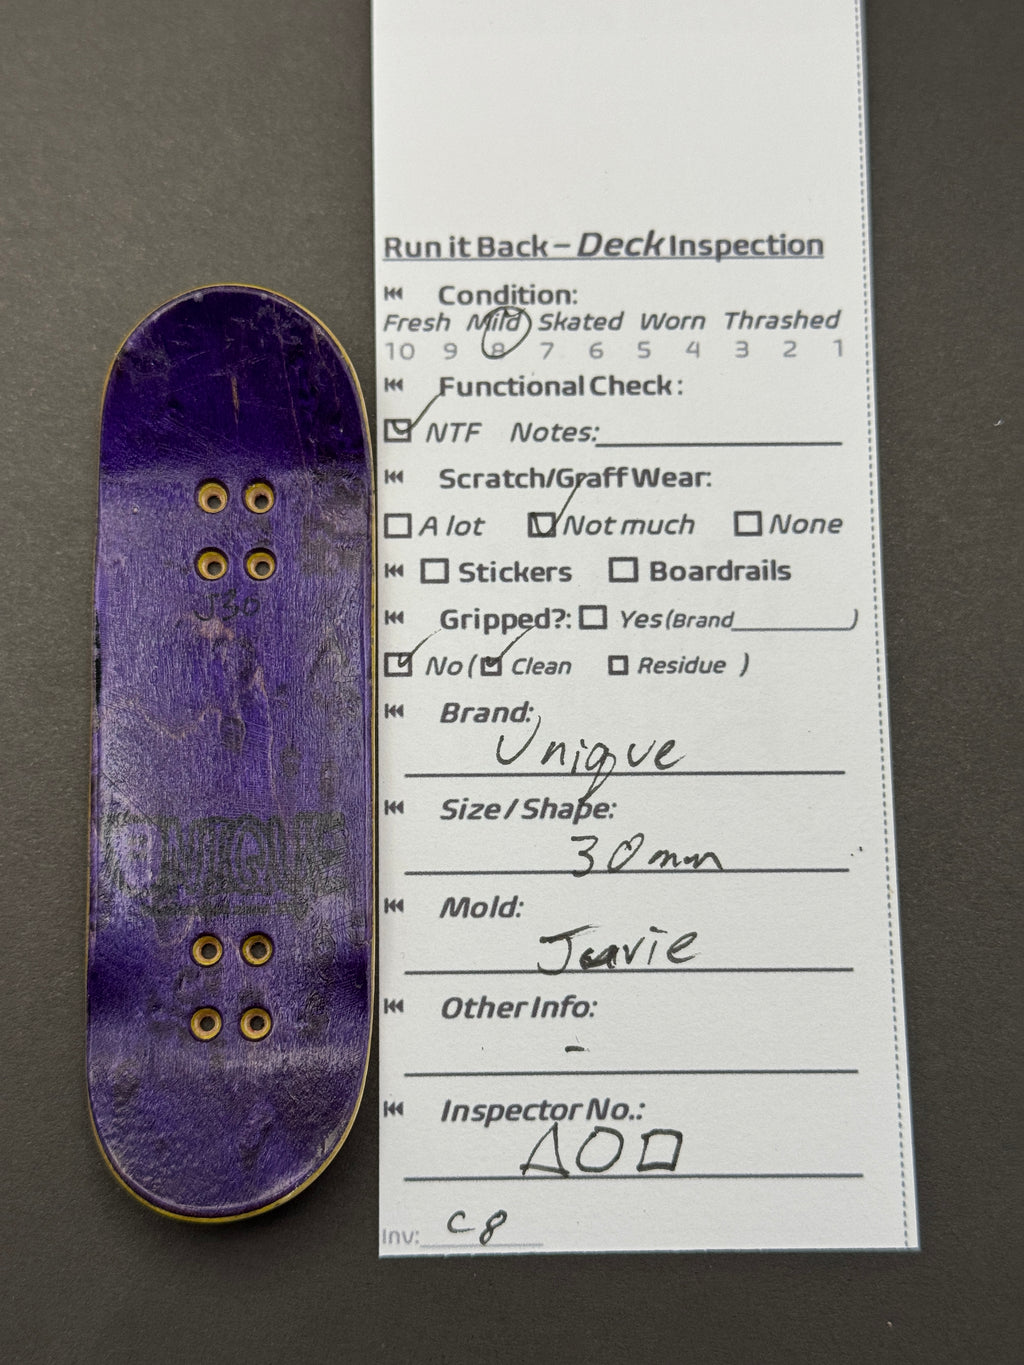 Run it Back – Deck Inspection
Condition:
Fresh Mild Skated Worn Thrashed
10 9 8 7 6 5 4 3 2 1
Functional Check:
NTF Notes:
Scratch/Graff Wear:
A lot Not much None
Stickers Boardrails
Gripped?: Yes (Brand )
No ( Clean Residue )
Brand:
Unique
Size / Shape:
30mm
Mold:
Jeavie
Other Info:
-
Inspector No.:
△○□
Inv: C8
J30
UNIQUE